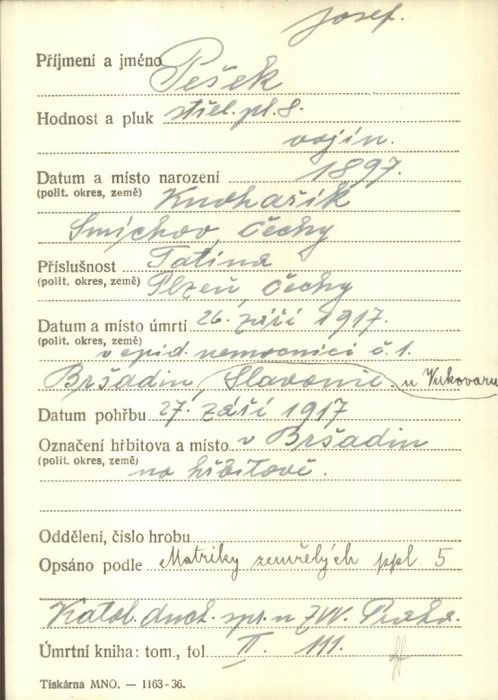 Josef.
Příjmení a jméno Pešek
Hodnost a pluk střel. pl. 8.
vojín.
Datum a místo narození 1897.
(polit. okres, země) Knohařík
Smíchov, Čechy
Příslušnost Tatina
(polit. okres, země) Plzeň, Čechy
Datum a místo úmrtí 26. září 1917.
(polit. okres, země) v epid. nemocnici č. 1.
Bršadin, Slavonie, u Vukovaru
Datum pohřbu 27. září 1917
Označení hřbitova a místo v Bršadin
(polit. okres, země) na hřbitově.
Oddělení, číslo hrobu
Opsáno podle Matriky zemřelých ppl. 5
Katol. duch. spr. u ZVV. Praha.
Úmrtní kniha: tom., fol II. 111.
Tiskárna MNO. — 1163-36.